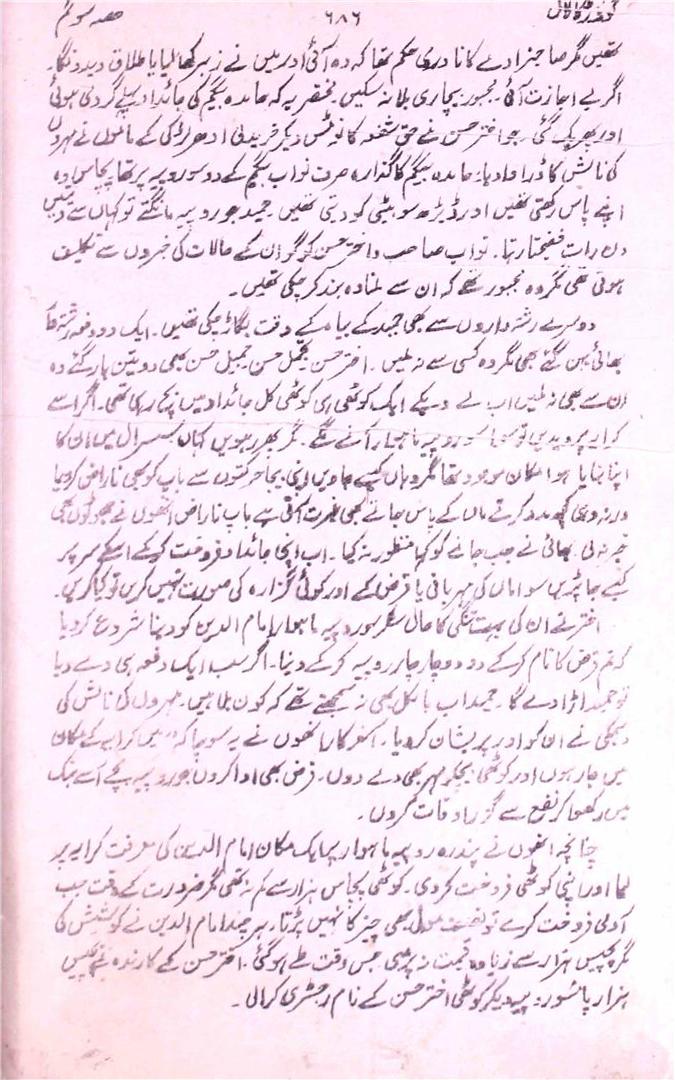 گودڑ کا لال ۶۸۶ حصہ سوئم
تھیں مگر صاحبزادے کا نادری حکم تھا کہ وہ آئی اور میں نے زہر کھا لیا یا طلاق دیدونگا۔
اگر بے اجازت آئی۔ مجبور بیچاری بلا نہ سکیں۔ مختصر یہ کہ حامدہ بیگم کی جائداد پہلے گردی ہوئی
اور پھر بک گئی۔ جو اختر حسن نے حق شفعہ کا نوٹس دیکر خریدلی ادھر لڑکی کے ماموں نے مہروں
کی نالش کا ڈراوا دیا۔ حامدہ بیگم کا گذارہ صرف نواب بیگم کے دو سو روپیہ پر تھا پچاس وہ
اپنے پاس رکھتی تھیں اور ڈیڑھ سو بیٹی کو دیتی تھیں۔ حمید جو روپیہ مانگتے تو کہاں سے دیتیں
دن رات فضیحتا رہتا۔ نواب صاحب و اختر حسن کو گو ان کے حالات کی خبروں سے تکلیف
ہوتی تھی مگر وہ مجبور تھے کہ ان سے ملنا وہ بند کر چکی تھیں۔
دوسرے رشتہ داروں سے بھی حمید کے بیاہ کے وقت بگاڑ چکی تھیں۔ ایک دو دفعہ رشتہ کے
بھائی بہن گئے بھی مگر وہ کسی سے نہ ملیں۔ اختر حسن مکمل حسن جمیل حسن بھی دو تین بار گئے وہ
ان سے بھی نہ ملیں اب لے دیکے ایک کوٹھی ہی کوٹھی کل جائداد میں بچ رہی تھی۔ اگر اسے
کرایہ پر دیدیں تو سوا سو روپیہ ماہوار آنے لگے۔ مگر پھر رہویں کہاں سسرال میں ان کا
اپنا بنایا ہوا مکان موجود تھا مگر وہاں کیسے جاویں اپنی بیجا حرکتوں سے باپ کو بھی ناراض کر دیا
ورنہ وہی کچھ مدد کرتے ماں کے پاس جانے کبھی غیرت آتی ہے باپ ناراض انھوں نے جھوٹوں بھی
خبر نہ لی۔ بھائی نے جب جانے کو کہا منظور نہ کیا۔ اب اپنی جائداد فروخت کر کے اسکے سر پر
کیسے جا پڑیں سوا ماں کی مہربانی یا قرض کے اور کوئی گزارہ کی صورت نہیں کریں تو کیا کریں۔
اختر نے ان کی بہت تنگی کا حال سنکر سو روپیہ ماہوار امام الدین کو دینا شروع کر دیا
کہ تم قرض کا نام کر کے دو دو چار چار روپیہ کر کے دینا۔ اگر سب ایک دفعہ ہی دے دیا
تو حمید اڑا دے گا۔ حمید اب بالکل بھی نہ سمجھتے تھے کہ کون بلا ہیں۔ مہروں کی نالش کی
دھمکی نے ان کو اور پریشان کر دیا۔ آخر کار انھوں نے یہ سوچا کہ میں کرایہ کے مکان
میں جا رہوں اور کوٹھی بیچکر مہر بھی دے دوں۔ قرض بھی ادا کروں جو روپیہ بچے اسے بنک
میں رکھوا کر نفع سے گزر اوقات کروں۔
چنانچہ انھوں نے پندرہ روپیہ ماہوار پر ایک مکان امام الدین کی معرفت کرایہ پر
لیا اور اپنی کوٹھی فروخت کر دی۔ کوٹھی پچاس ہزار سے کم نہ تھی مگر ضرورت کے وقت جب
آدمی فروخت کرے تو نصف مول بھی چیز کا نہیں پڑتا۔ ہر چند امام الدین نے کوشش کی
مگر پچیس ہزار سے زیادہ قیمت نہ بڑھی جس وقت طے ہو گئی۔ اختر حسن کے کارندہ نے پچیس
ہزار پانسو روپیہ دیکر کوٹھی اختر حسن کے نام رجسٹری کرالی۔